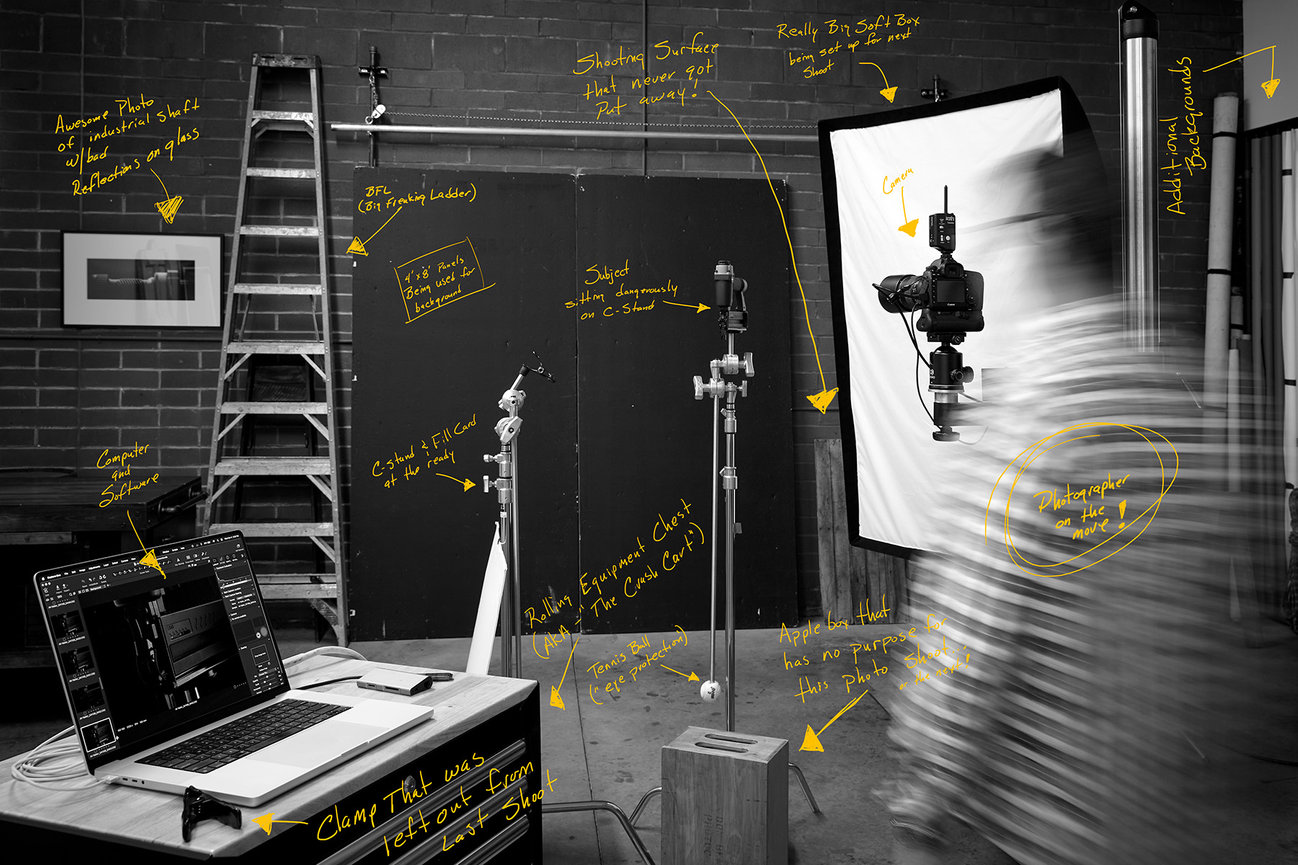 Really Big Soft Box
being set up for next
shoot
Shooting Surface
that never got
Put away!
Additional
Backgrounds
Awesome Photo
of industrial shaft
w/bad
Reflections on glass
BFL
(Big Freaking Ladder)
Camera
4' x 8' Panels
Being used for
background
Subject
sitting dangerously
on C-Stand
Computer
and
Software
C-stand & Fill Card
at the ready
Photographer
on the
move!
Rolling Equipment Chest
(AKA - "The Crash Cart")
Tennis Ball
("eye protection)
Apple box that
has no purpose for
this photo shoot
or the next!
Clamp That was
left out from
Last Shoot